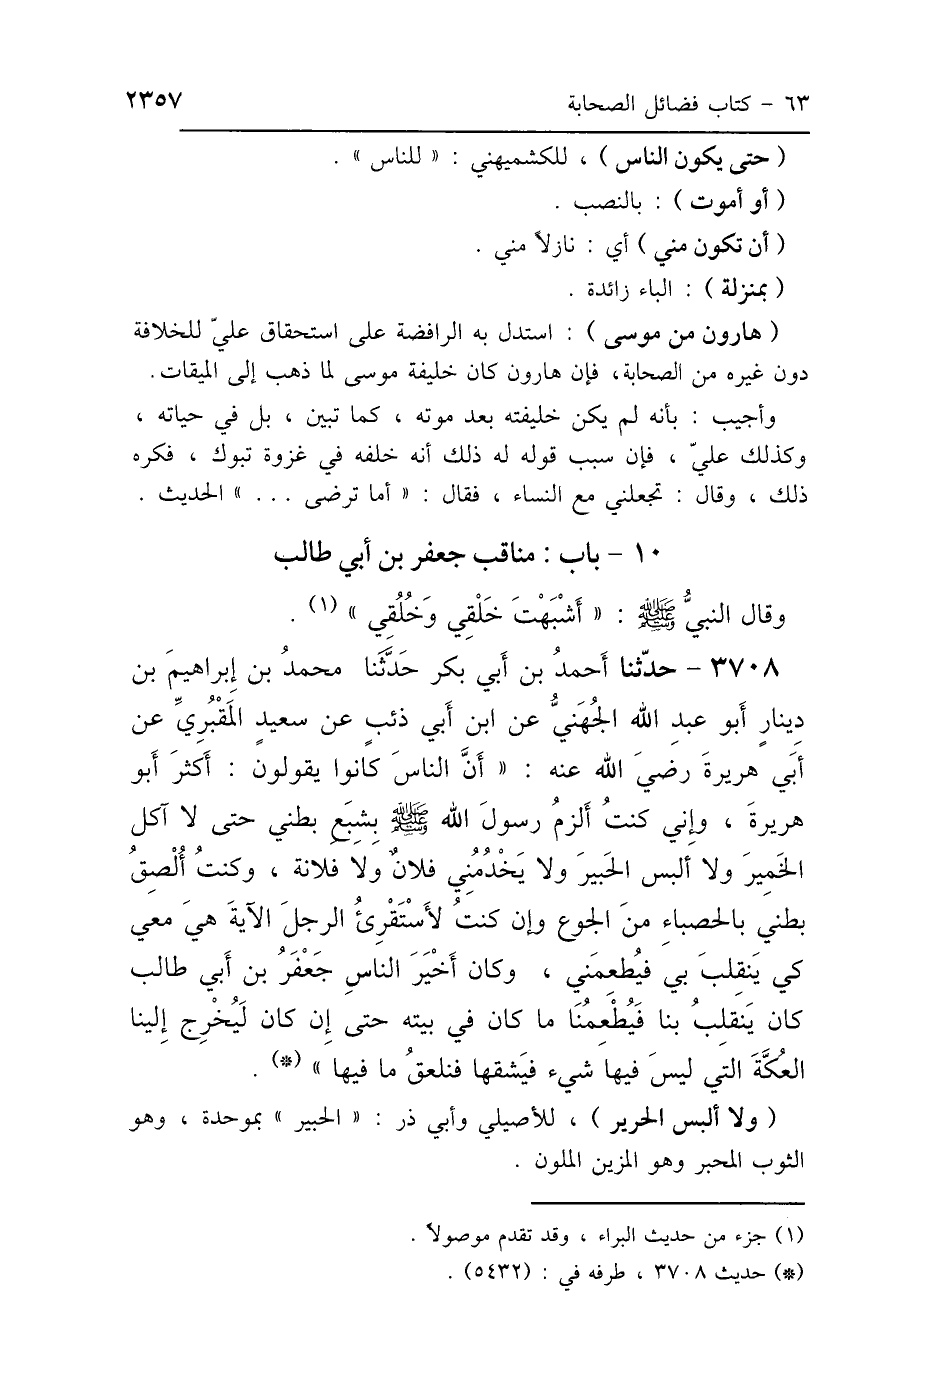 ٦٣ - كتاب فضائل الصحابة ٢٣٥٧
( حتى يكون الناس ) ، للكشميهني : « للناس » .
( أو أموت ) : بالنصب .
( أن تكون مني ) أي : نازلاً مني .
( بمنزلة ) : الباء زائدة .
( هارون من موسى ) : استدل به الرافضة على استحقاق عليّ للخلافة
دون غيره من الصحابة، فإن هارون كان خليفة موسى لما ذهب إلى الميقات.
وأجيب : بأنه لم يكن خليفته بعد موته ، كما تبين ، بل في حياته ،
وكذلك عليّ ، فإن سبب قوله له ذلك أنه خلفه في غزوة تبوك ، فكره
ذلك ، وقال : تجعلني مع النساء ، فقال : « أما ترضى ... » الحديث .
١٠ - باب : مناقب جعفر بن أبي طالب
وقال النبيُّ ﷺ : « أَشْبَهْتَ خَلْقِي وَخُلُقِي » (١) .
٣٧٠٨ - حدّثنا أحمدُ بن أبي بكر حَدَّثَنا محمدُ بن إبراهيمَ بن
دِينارٍ أبو عبد اللهِ الجُهَنيُّ عن ابن أبي ذئبٍ عن سعيدٍ المَقْبُريِّ عن
أبي هريرةَ رضيَ اللهُ عنه : « أنَّ الناسَ كانوا يقولون : أكثرَ أبو
هريرةَ ، وإني كنتُ ألزمُ رسولَ الله ﷺ بشِبَعِ بطني حتى لا آكل
الخَميرَ ولا ألبس الحَبيرَ ولا يَخْدُمُني فلانٌ ولا فلانة ، وكنتُ أُلْصِقُ
بطني بالحصباءِ منَ الجوع وإن كنتُ لأَسْتَقْرِئُ الرجلَ الآيةَ هيَ معي
كي يَنقلِبَ بي فيُطعِمَني ، وكان أخْيَرَ الناسِ جَعْفَرُ بن أبي طالب
كان يَنقلِبُ بنا فَيُطْعِمُنَا ما كان في بيته حتى إن كان لَيُخْرِج إلينا
العُكَّةَ التي ليسَ فيها شيء فيَشقها فنلعقُ ما فيها » (*) .
( ولا ألبس الحرير ) ، للأصيلي وأبي ذر : « الحبير » بموحدة ، وهو
الثوب المحبر وهو المزين الملون .
(١) جزء من حديث البراء ، وقد تقدم موصولاً .
(*) حديث ٣٧٠٨ ، طرفه في : (٥٤٣٢) .